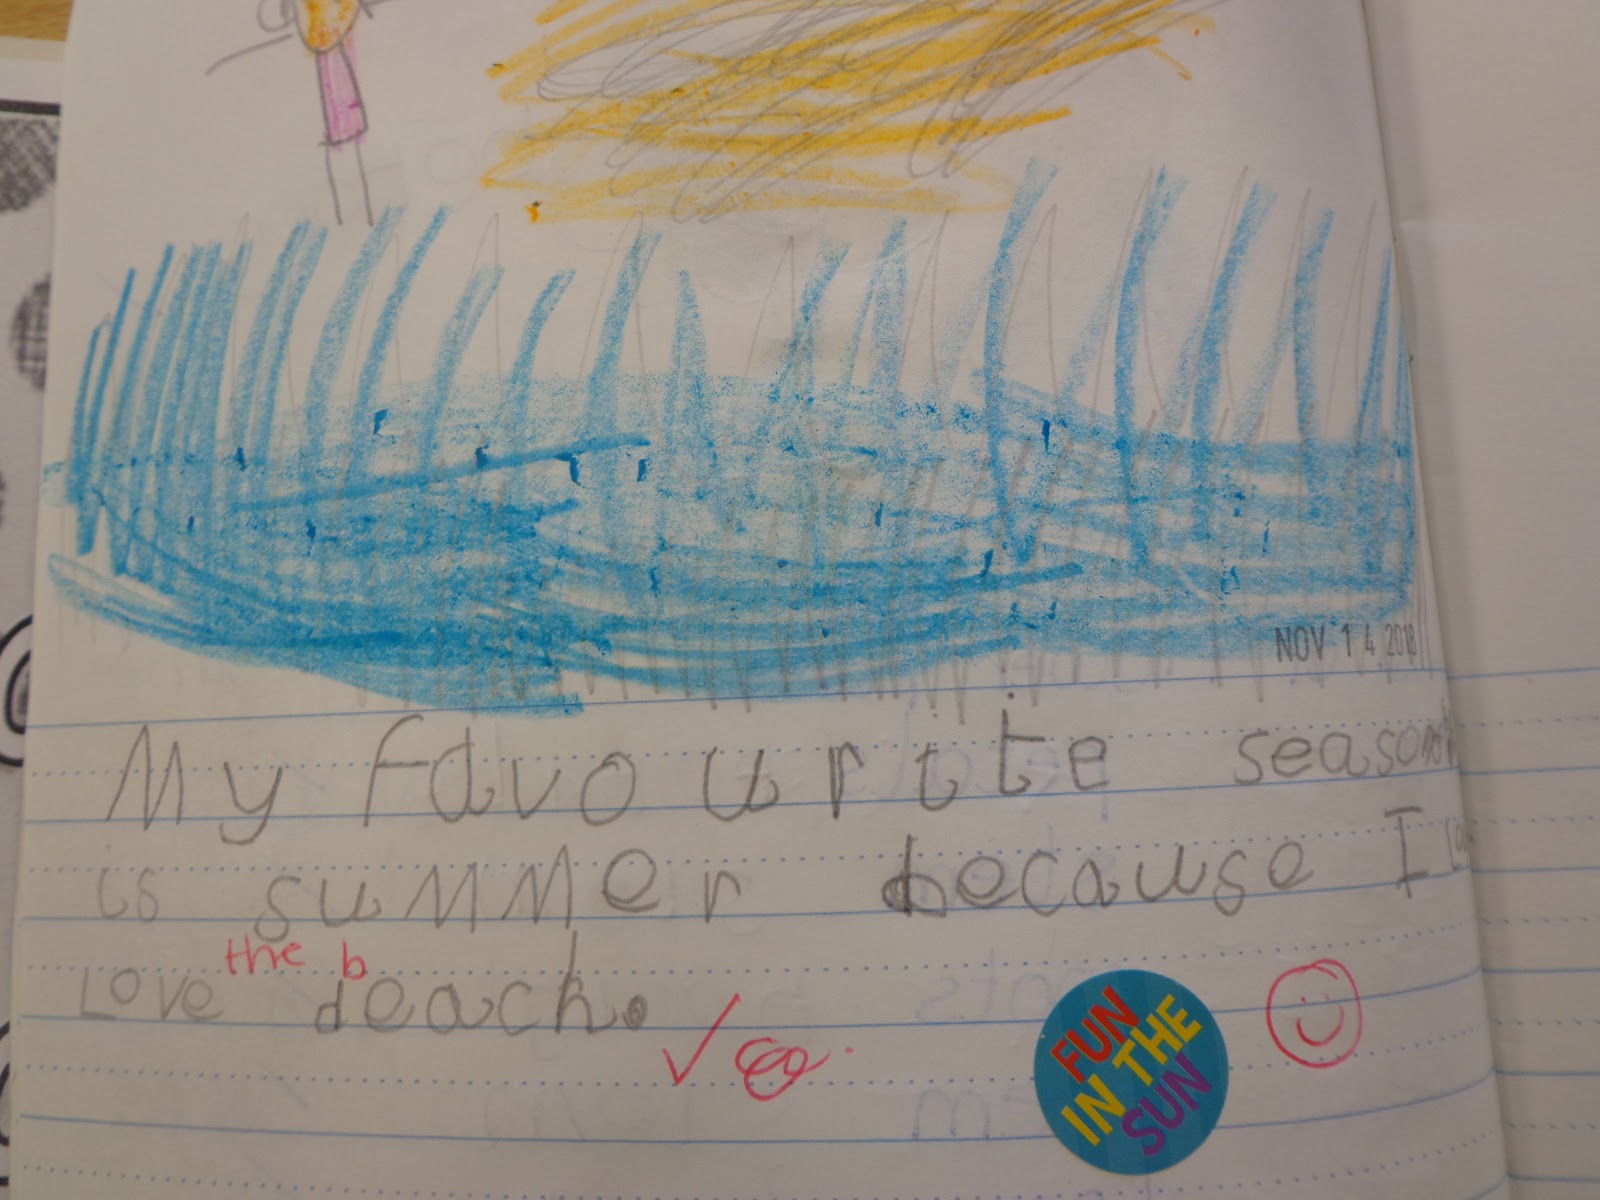 NOV 14 2018
My favourite season
is summer because I
the b
Love deach.
FUN
IN THE
SUN